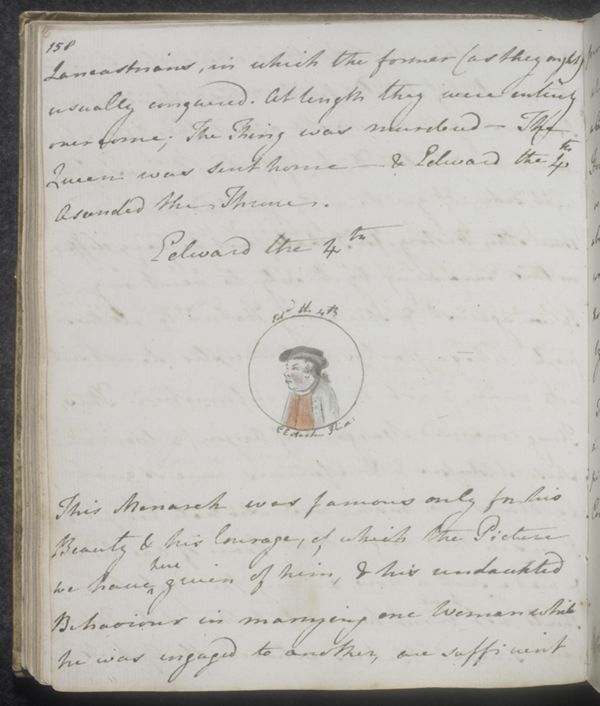 158
Lancastrians, in which the former (as they ought)
usually conquered. At length they were entirely
overcome; The King was murdered — The
Queen was sent home — & Edward the 4th
Ascended the Throne.
Edward the 4th
Edwd the 4th
C E Austen Pinx:
This Monarch was famous only for his
Beauty & his Courage, of which the Picture
we have here given of him, & his undaunted
Behaviour in marrying one Woman while
he was engaged to another, are sufficient